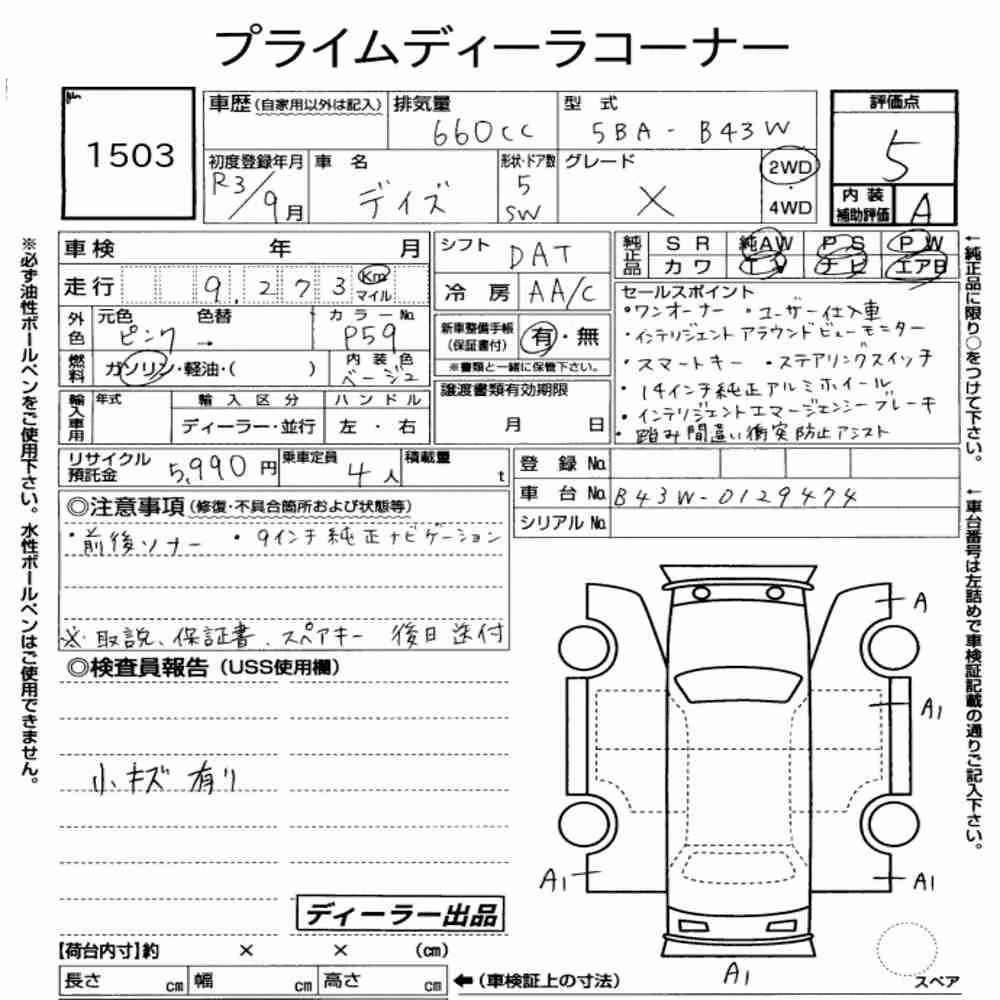 プライムディーラコーナー
1503
車歴(自家用以外は記入)
排気量 660cc
型式 5BA-B43W
評価点 5
内装補助評価 A
初度登録年月 R3/9月
車名 デイズ
形状・ドア数 5 SW
グレード X
2WD・4WD
車検 年 月
走行 9,273 Km マイル
シフト DAT
冷房 AA/C
純正品 SR 純AW PS PW
カワ TV ナビ エアB
外色 元色 ピンク 色替 →
カラーNo. P59
燃料 ガソリン・軽油・( )
内装色 ベージュ
新車整備手帳(保証書付) 有・無
※書類と一緒に保管下さい。
輸入車用 年式 輸入区分 ディーラー・並行
ハンドル 左・右
譲渡書類有効期限 月 日
セールスポイント
・ワンオーナー ・ユーザー仕入車
・インテリジェントアラウンドビューモニター
・スマートキー ・ステアリングスイッチ
・14インチ純正アルミホイール
・インテリジェントエマージェンシーブレーキ
・踏み間違い衝突防止アシスト
リサイクル預託金 5,990円
乗車定員 4人
積載量 t
登録No.
車台No. B43W-0129474
シリアルNo.
◎注意事項(修復・不具合箇所および状態等)
・前後ソナー ・9インチ純正ナビゲーション
※取説、保証書、スペアキー 後日送付
◎検査員報告(USS使用欄)
小キズ有り
ディーラー出品
【荷台内寸】約 × × (cm)
長さ cm 幅 cm 高さ cm
←(車検証上の寸法)
A
A1
A1
A1
A1
スペア
※必ず油性ボールペンをご使用下さい。水性ボールペンはご使用できません。
←純正品に限り○をつけて下さい。
←車台番号は左詰めで車検証記載の通りご記入下さい。